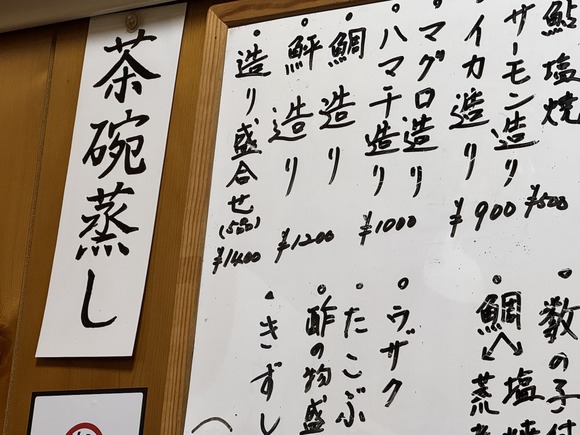 茶碗蒸し
鮎塩焼
¥500
サーモン造り
イカ造り
¥900
マグロ造り
ハマチ造り
¥1000
鯛造り
鮃造り
¥1200
造り盛合せ(5種)
¥1400
数の子付
鯛
塩焼
荒
ウザク
たこぶ
酢の物盛
きずし